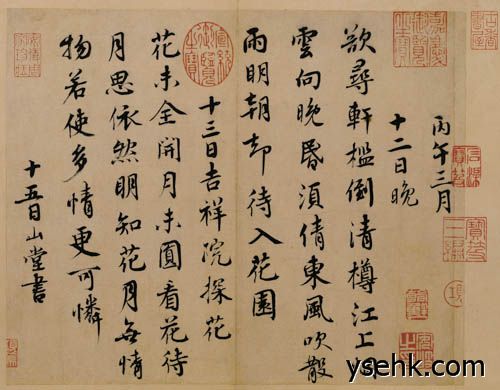 丙午三月
十二日晚
欲尋軒檻倒清樽江上烟
雲向晚昏須倩東風吹散
雨明朝却待入花園
十三日吉祥院探花
花未全開月未圓看花待
月思依然明知花月無情
物若使多情更可憐
十五日山堂書
ysehk.com